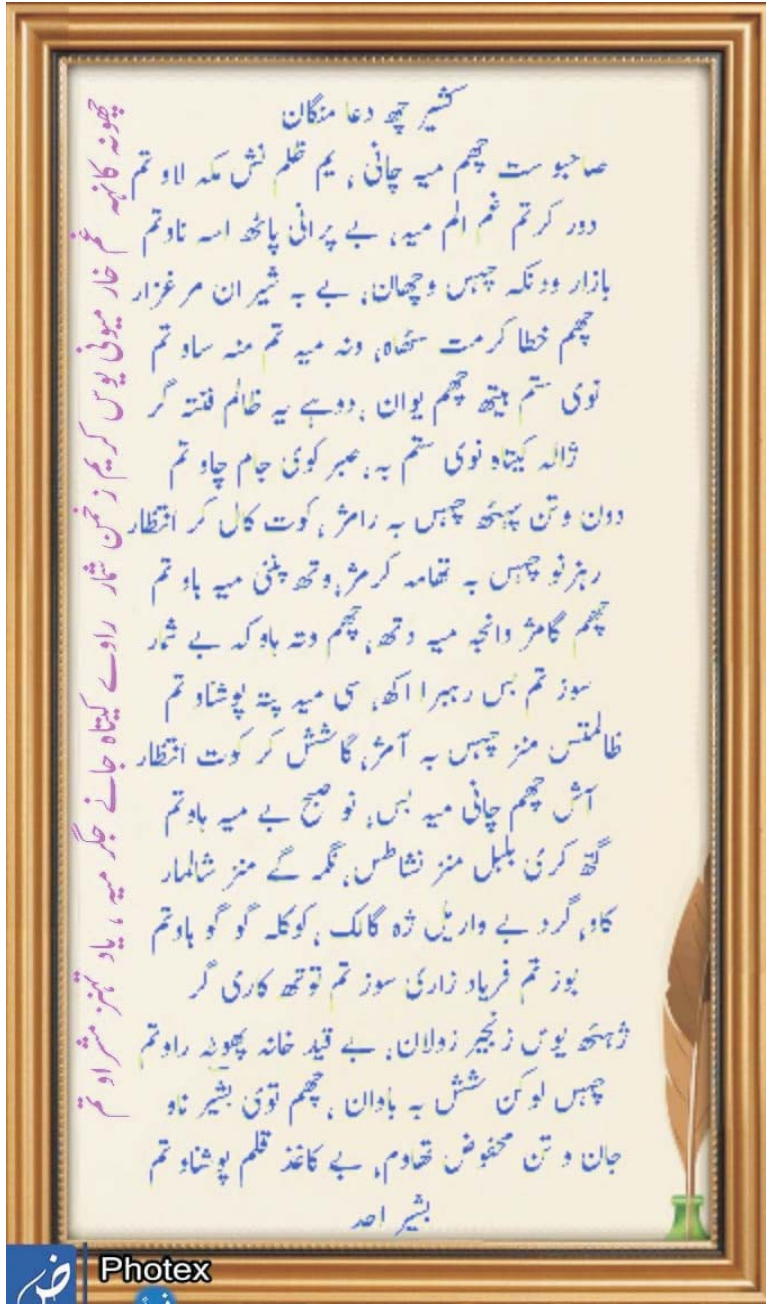 کشیر چھ دعا منگان
صاحبو ست چھم میہ چانی، یم ظلم نش مکہ لاو تم
دور کرتم غم الم میہ، بے پرانی پاٹھ اسہ ناوتم
بازار وونکہ چہس وچھان، بے بہ شیر ان مرغزار
چھم خطا کرمت سٹھاہ، ونہ میہ تم منہ ساو تم
نوی ستم ہیتھ چھم یوان، دوہے یہ ظالم فتنہ گر
ژالہ کیتاہ نوی ستم بہ، صبر کوی جام چاو تم
دون وتن پہٹھ چہس بہ رامژ، کوت کال کر انتظار
رہزنو چہس بہ تھامہ کرمژ، وتھ پننی میہ ہاو تم
چھم گامژ وانجہ میہ دتھ، چھم وتہ ہاوکہ بے شمار
سوز تم بس رہبرا اکھ، سی میہ پتہ پوشناو تم
ظالمتس منز چہس بہ آمژ، گاشش کر کوت انتظار
آش چھم چانی میہ بس، نو صبح بے میہ ہاوتم
گتھ کری بلبل منز نشاطس، نگمہ گے منز شالمار
کاو، گرد بے واریل ژہ گالک، کوکلہ گو گو ہاوتم
بوز تم فریاد زاری سوز تم توتھ کاری گر
ژہٹھ یوس زنجیر زولان، بے قید خانہ پھوٹہ راوتم
چہس لوکن شش بہ باوان، چھم توی بشیر ناو
جان و تن محفوض تھاوم، بے کاغذ قلم پوشناو تم
بشیر احد
چھونہ کانہہ غم خار میونی یوس کریم زخمن شمار راوے کیتاہ جانے جگر میہ، یاد تہنز مشراو تم
Photex